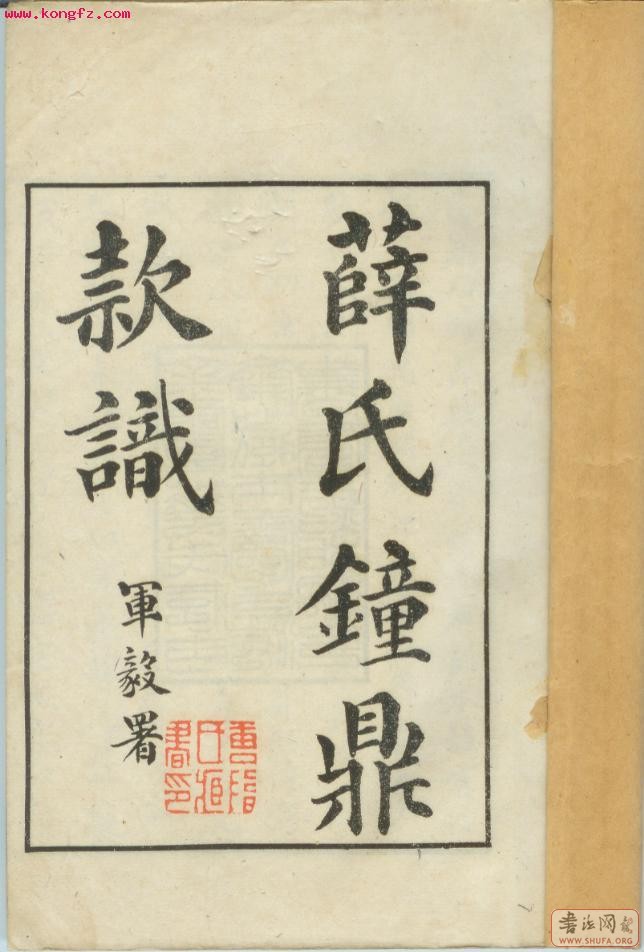 孔网
www.kongfz.com
薛氏鐘鼎
款識
軍毅署
书法网
WWW.SHUFA.ORG